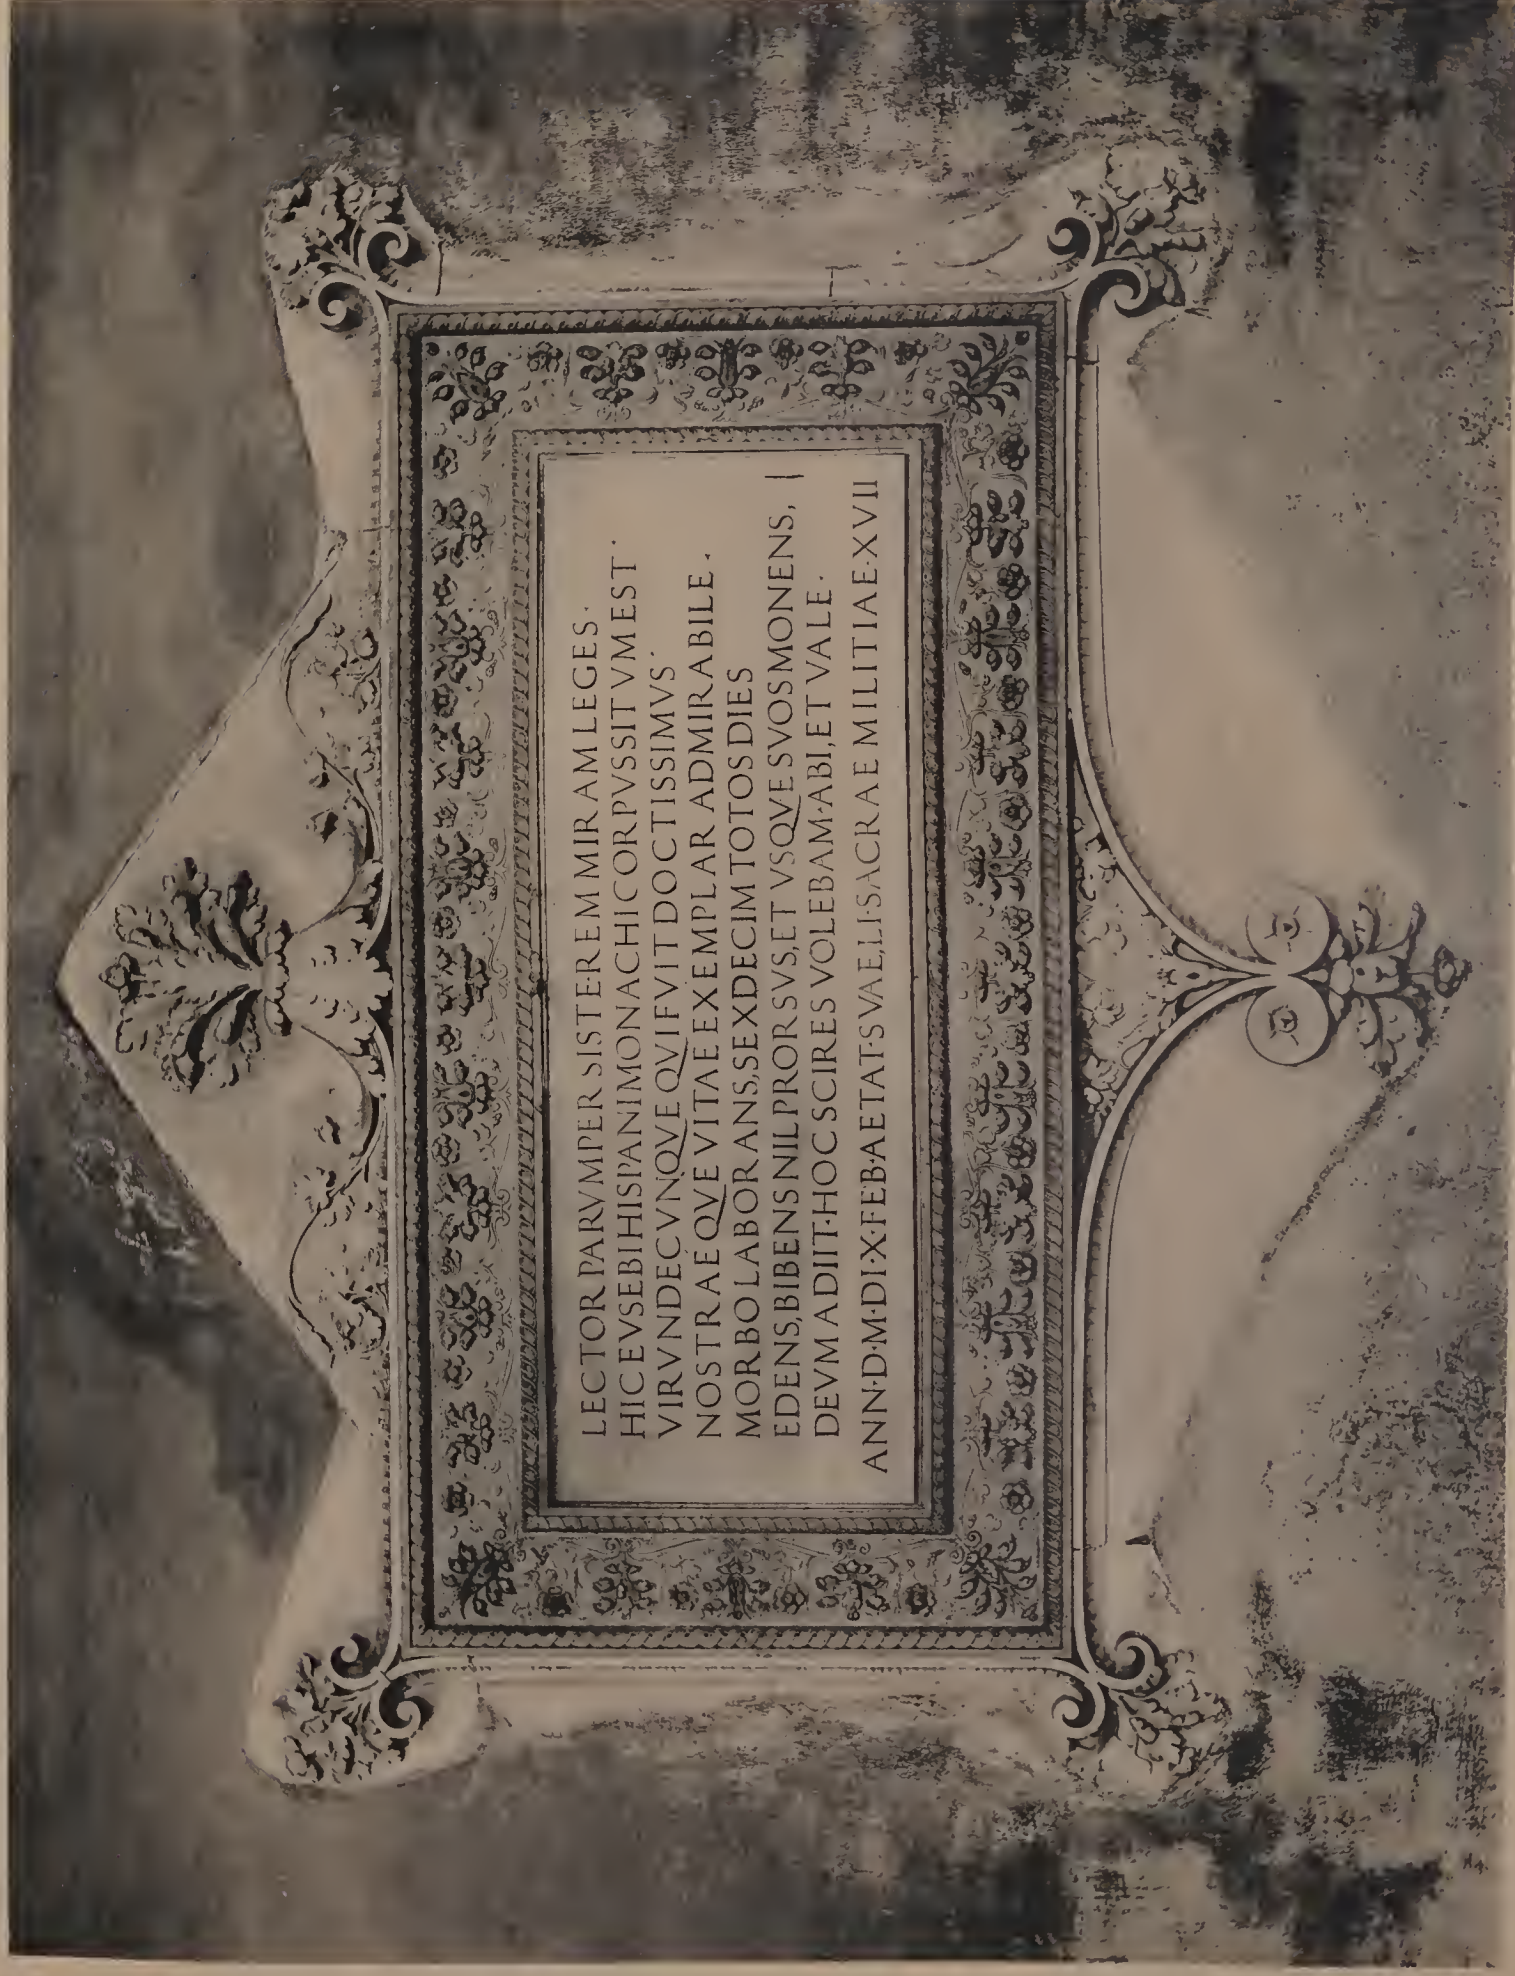 LECTOR PARVMPER SISTE REM MIRAM LEGES ·
HIC EVSEBI HISPANI MONACHI CORPVS SITVM EST ·
VIR VNDECVNQVE QVI FVIT DOCTISSIMVS ·
NOSTRAEQVE VITAE EXEMPLAR ADMIRABILE ·
MORBO LABORANS, SEXDECIM TOTOS DIES
EDENS, BIBENS NIL PRORSVS, ET VSQVE SVOS MONENS,
DEVM ADIIT·HOC SCIRES VOLEBAM·ABI, ET VALE ·
ANN·D·M·DI·X·FEB·AETAT·SVAE, LI·SACRAE MILITIAE·XVII